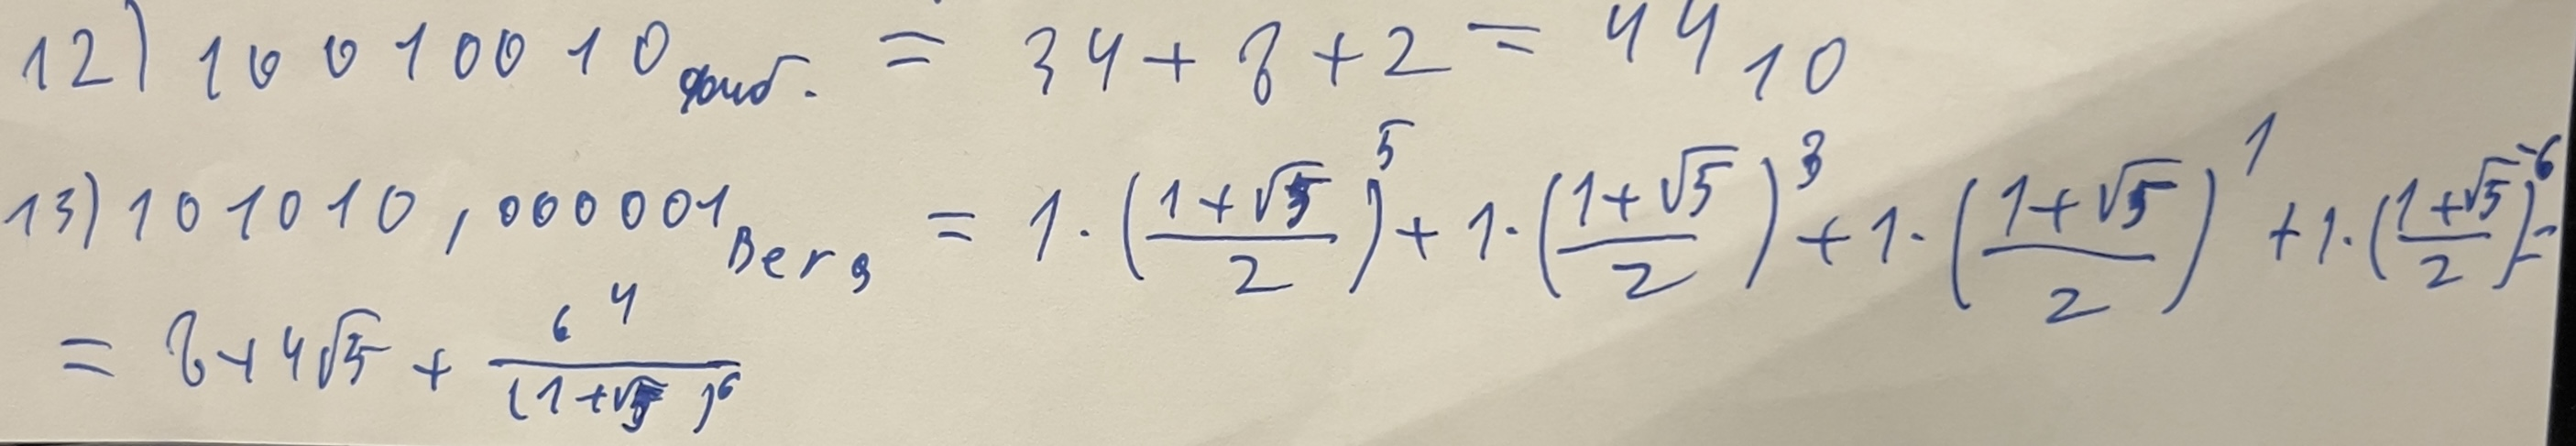 12) 10010010фиб. = 34 + 8 + 2 = 44₁₀
13) 101010,000001Berg = 1·((1+√5)/2)⁵ + 1·((1+√5)/2)³ + 1·((1+√5)/2)¹ + 1·((1+√5)/2)⁻⁶ =
= 8+4√5 + 64/(1+√5)⁶